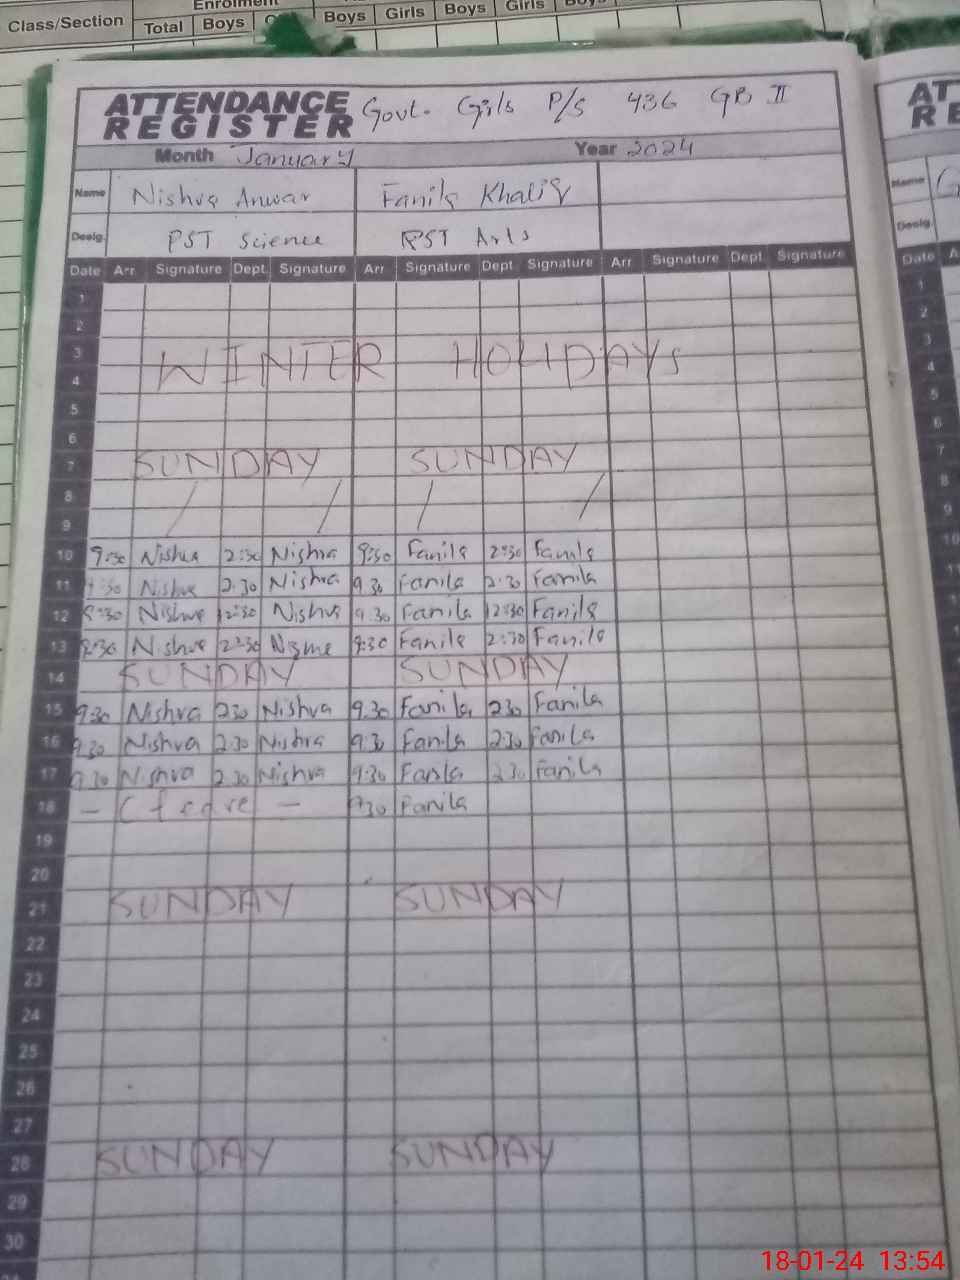 Class/Section Enrolment
Total Boys Boys Girls Boys Girls Boys
ATTENDANCE REGISTER Govt. Girls P/S 436 GB II
Month January Year 2024
Name Nishva Anwar Fanila Khaliq
Desig. PST Science PST Arts
Date Arr. Signature Dept. Signature Arr Signature Dept Signature Arr Signature Dept Signature
1
2
3
WINTER HOLIDAYS
4
5
6
7 SUNDAY SUNDAY
8
9
10 9:30 Nishva 2:30 Nishva 9:30 Fanila 2:30 Fanila
11 9:30 Nishva 2.30 Nishva 9.30 Fanila 2.30 Fanila
12 Nishva 12:30 Nishva 9.30 Fanila 12:30 Fanila
13 Nishva 2:30 9:30 Fanila 2:30 Fanila
14 SUNDAY SUNDAY
15 9.30 Nishva 230 Nishva 9.30 Fanila 230 Fanila
16 9.30 Nishva 2.30 Nishva 9.30 Fanila 2.30 Fanila
17 9.30 Nishva 2.30 Nishva 9.30 Fanila 2.30 Fanila
18 — — 9.30 Fanila
19
20
21 SUNDAY SUNDAY
22
23
24
25
26
27
28 SUNDAY SUNDAY
29
30
Name
Desig.
Date
1
2
3
4
5
6
7
8
9
10
18-01-24 13:54